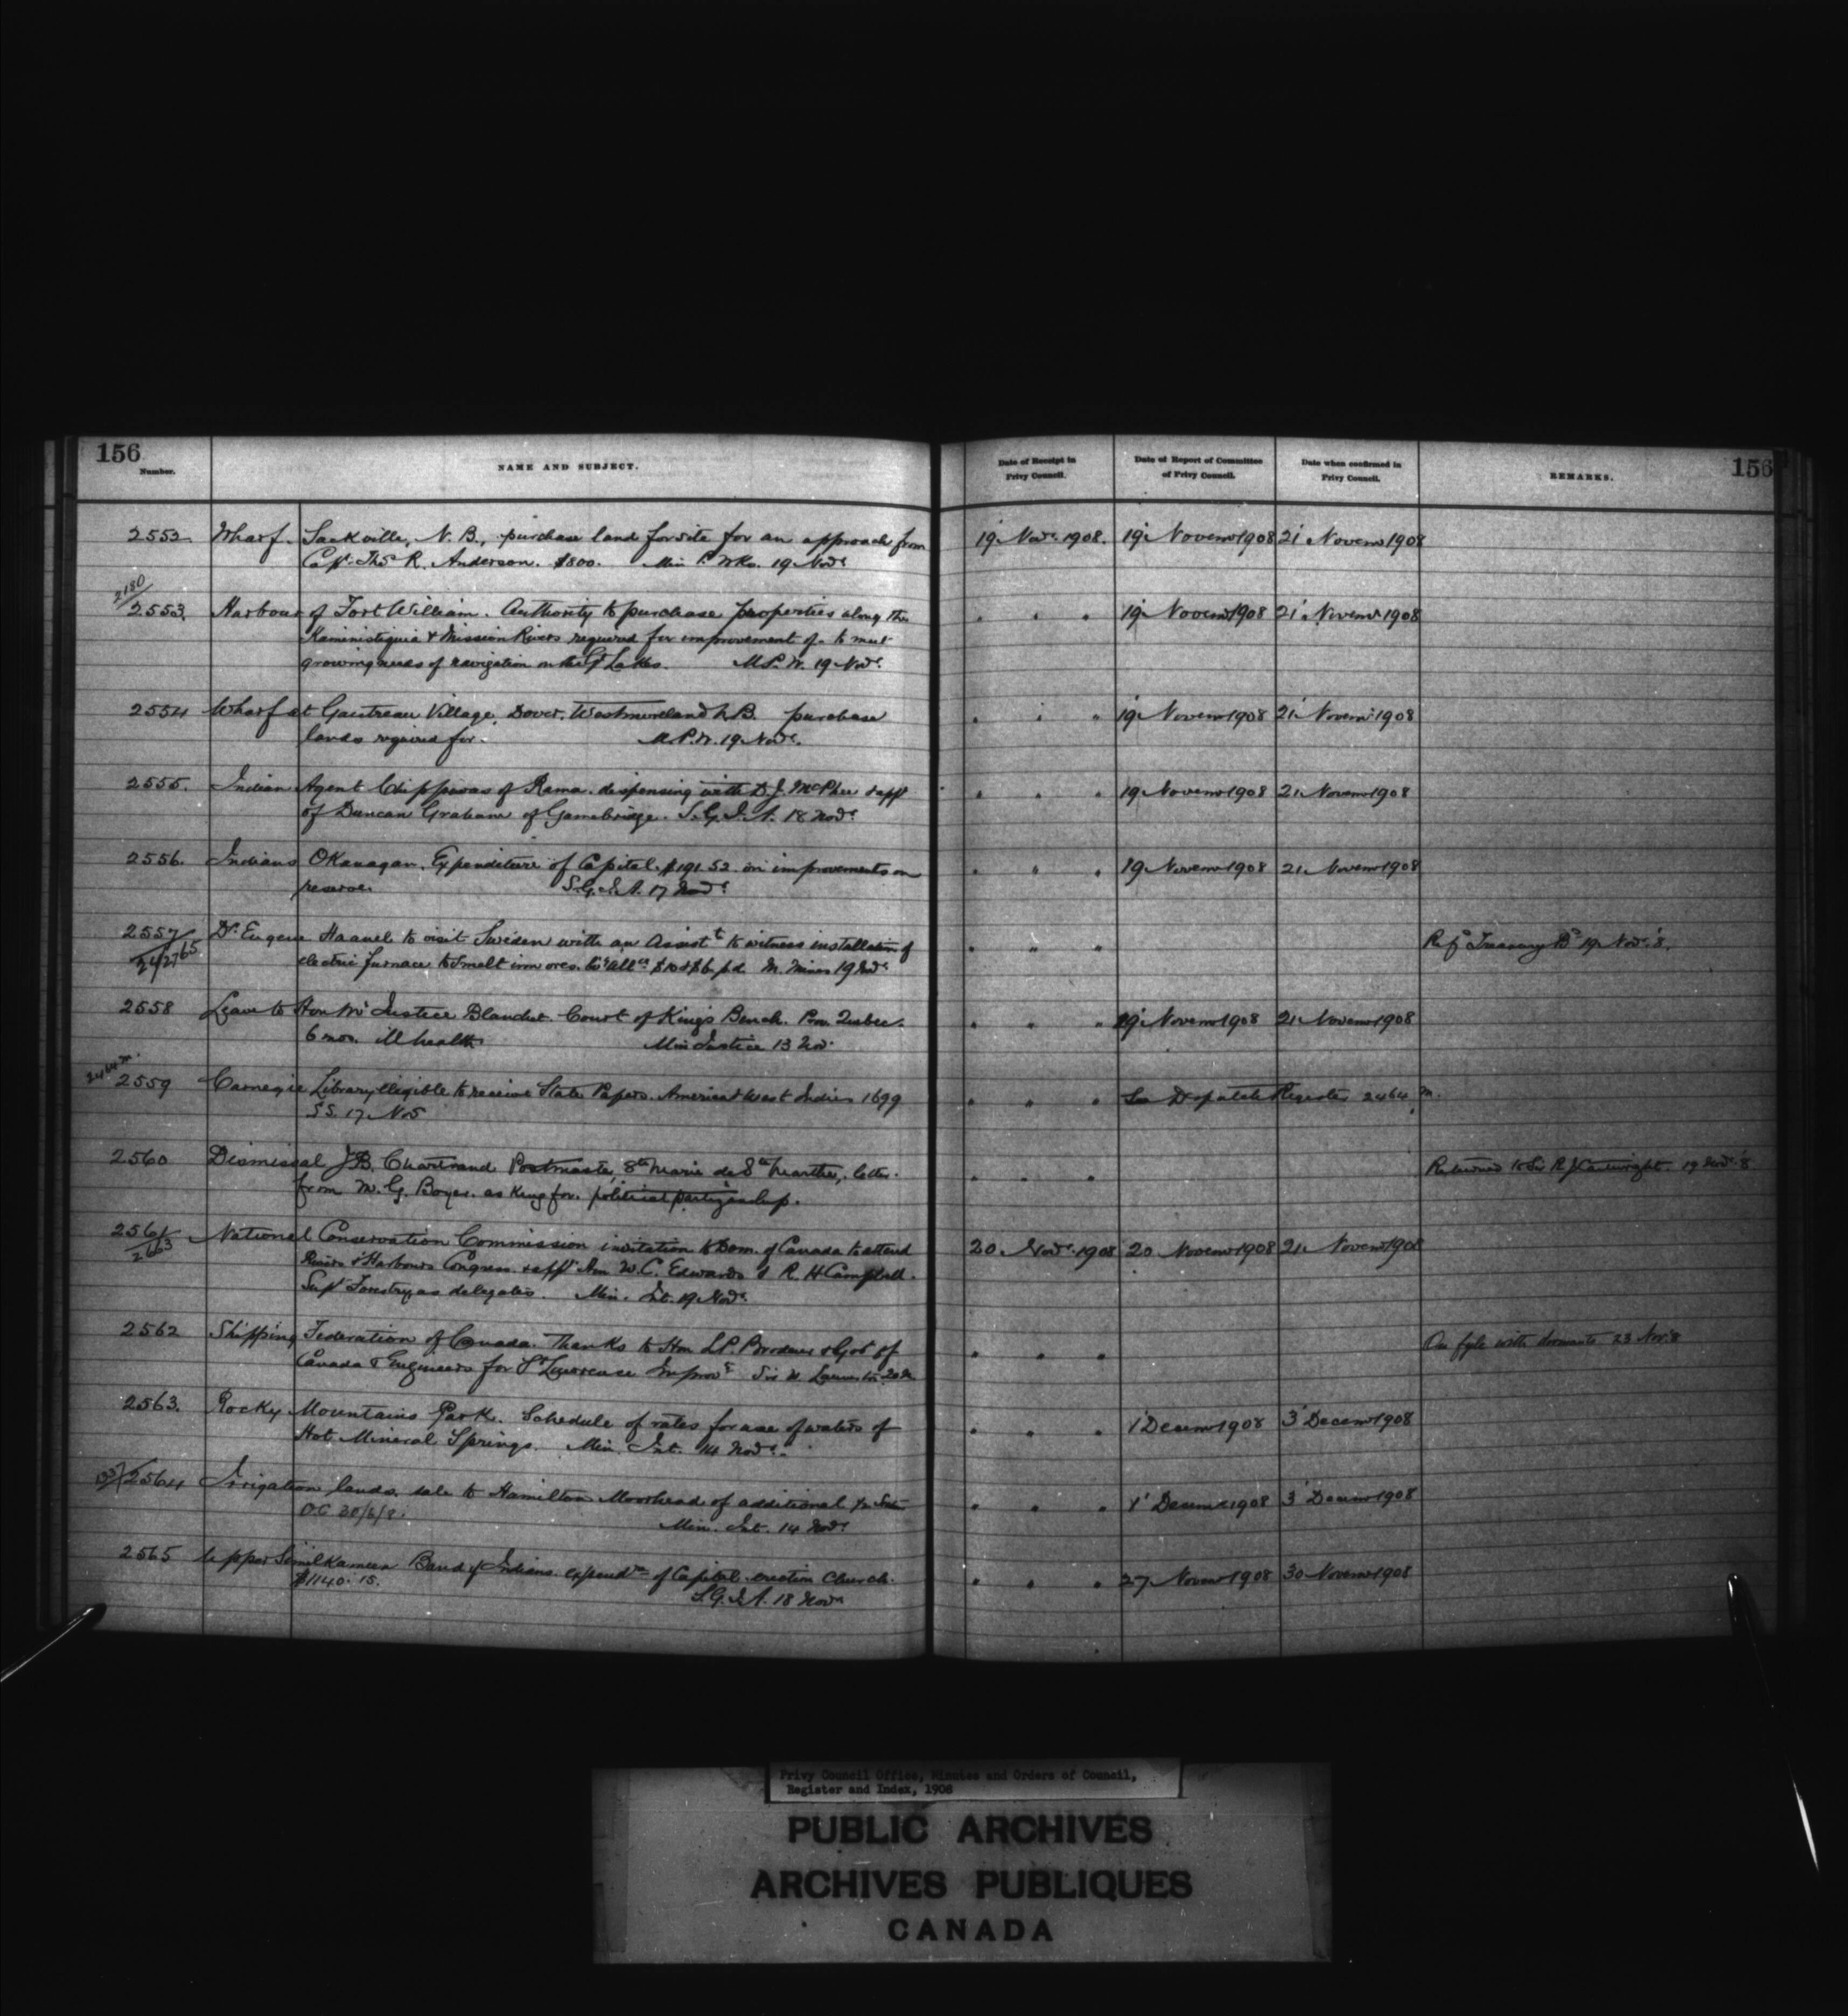 156
Number.
NAME AND SUBJECT.
Date of Receipt in Privy Council.
Date of Report of Committee of Privy Council.
Date when confirmed in Privy Council.
REMARKS.
156
2552 Wharf. Sackville, N.B., purchase land for site for an approach from 19' Novr. 1908. 19' Novemr 1908 21' Novemr 1908
Capt. Thos R. Anderson. $800. Min P. Wks. 19 Novr
2180
2553. Harbour of Fort William. Authority to purchase properties along the " " " 19' Novemr 1908 21' Novemr 1908
Kaministiquia & Mission Rivers required for improvement of - to meet
growing needs of navigation on the Gt Lakes. M.P.W. 19 Novr.
2554 Wharf at Gautreau Village, Dover, Westmoreland N.B. purchase " " " 19' Novemr 1908 21' Novemr 1908
lands required for. M.P.W. 19 Novr.
2555. Indian Agent Chippewas of Rama. dispensing with D.J. McPhee & appt " " " 19 Novemr 1908 21 Novemr 1908
of Duncan Graham of Gamebridge. S.G.I.A. 18 Novr
2556. Indians Okanagan. Expenditure of Capital. $191.52 on improvements on " " " 19 Novemr 1908 21 Novemr 1908
reserve. S.G.I.A. 17 Novr
2557 Dr. Eugene Haanel to visit Sweden with an Assistt to witness installation of " " " Refd Treasury Bd 19 Novr. '8.
electric furnace to smelt iron ores. $10 & $6 p.d. M. Mines 19 Novr
2558 Leave to Hon Mr Justice Blanchet. Court of King's Bench. Quebec. " " " 19' Novemr 1908 21 Novemr 1908
6 mos. ill health Min Justice 13 Nov
2464 m.
2559 Carnegie Library eligible to receive State Papers. America & West Indies 1699 " " " See Despatch Register 2464 m.
S.S. 17 Nov
2560 Dismissal J.B. Chartrand Postmaster, Ste Marie de Ste Marthe, letter " " " Returned to Sir R J Cartwright. 19 Novr '8
from M. G. Boyer. asking for. political partizanship.
2561 National Conservation Commission invitation to Dom. of Canada to attend 20 Novr. 1908 20 Novemr 1908 21 Novemr 1908
2663
Rivers & Harbours Congress. & appt Hon W.C. Edwards & R. H Campbell.
Supt Forestry as delegates. Min. Int. 19 Novr.
2562 Shipping Federation of Canada. Thanks to Hon L.P. Brodeur & Govt of " " " On fyle with dormants 23 Nov. '8
Canada & Engineers for St Lawrence Improvt Sir W. Laurier
2563. Rocky Mountains Park. Schedule of rates for use of waters of " " " 1' Decemr 1908 3' Decemr 1908
Hot Mineral Springs. Min. Int. 14 Novr.
2564 Irrigation lands. sale to Hamilton Moorhead of additional " " " 1' Decemr 1908 3' Decemr 1908
O.C 30/6/8. Min. Int. 14 Novr
2565 Upper Similkameen Band of Indians. expendre of Capital. erection Church. " " " 27 Novemr 1908 30 Novemr 1908
$1140.15. S.G.I.A. 18 Novr
Privy Council Office, Minutes and Orders of Council,
Register and Index, 1908
PUBLIC ARCHIVES
ARCHIVES PUBLIQUES
CANADA